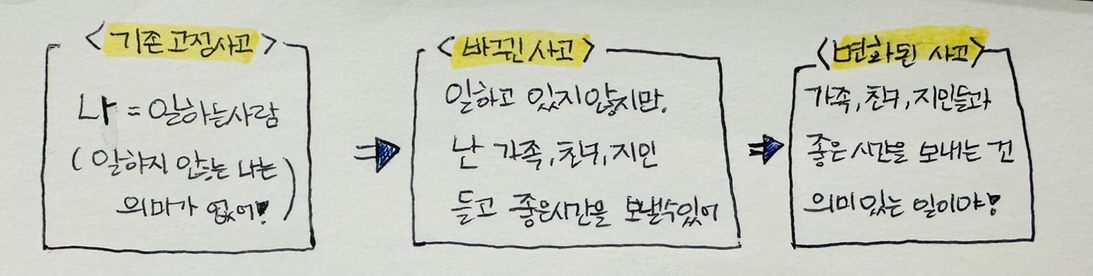 <기존 고정사고>
나 = 일하는사람
(일하지 않는 나는
의미가 없어!)
<바뀐 사고>
일하고 있지않지만,
난 가족,친구,지인
들고 좋은시간을 보낼수있어
<변화된 사고>
가족,친구,지인들과
좋은 시간을 보내는 건
의미있는 일이야!